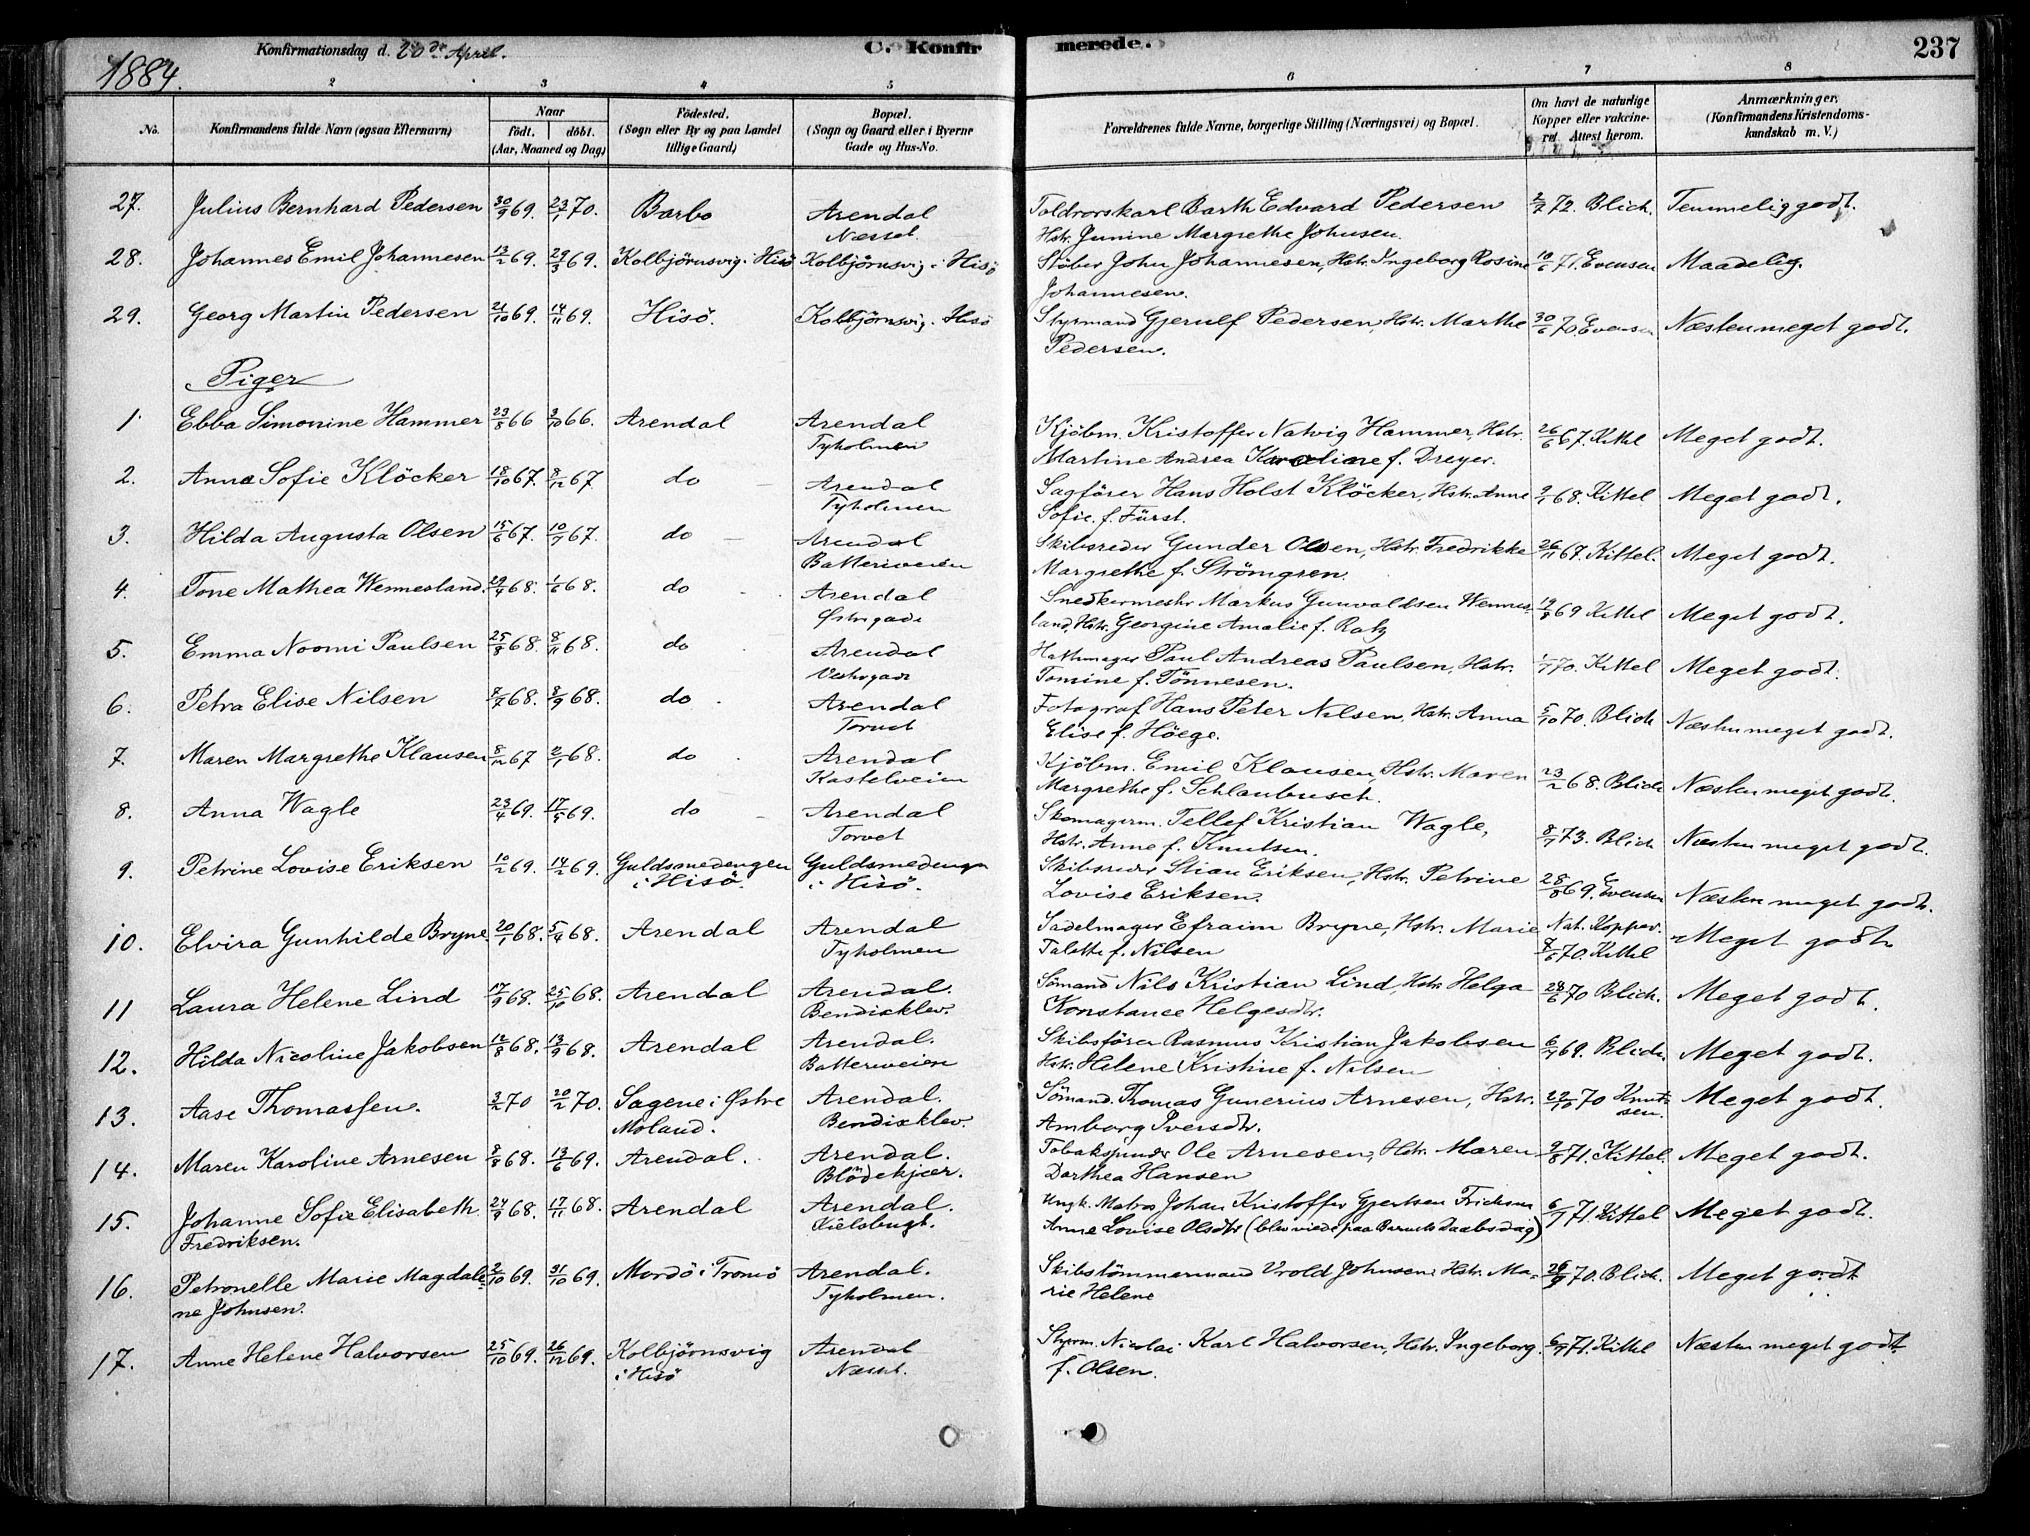 1884.
Konfirmationsdag d. 20de April.
C. Konfir
merede.
237
No.
2
Konfirmandens fulde Navn (ogsaa Efternavn)
3
Naar
født. | døbt.
(Aar, Maaned og Dag)
4
Fødested.
(Sogn eller By og paa Landet
tillige Gaard)
5
Bopæl.
(Sogn og Gaard eller i Byerne
Gade og Hus-No.
6
Forældrenes fulde Navne, borgerlige Stilling (Næringsvei) og Bopæl.
7
Om havt de naturlige
Kopper eller vakcine-
ret. Attest herom.
8
Anmærkninger.
(Konfirmandens Kristendoms-
kundskab m. V.)
27. Julius Bernhard Pedersen 30/9 69. 23/1 70. Barbo Arendal Toldrorskarl Barth Edvard Pedersen 2/7 72. Blich. Temmelig godt.
Næsset. Hstr. Junine Margrethe Johnsen.
28. Johannes Emil Johannesen 13/2 69. 29/3 69. Kolbjörnsvig i Hisö Kolbjörnsvig i Hisö Stöber John Johannesen, Hstr. Ingeborg Rosine 10/6 71. Evensen Maadelig.
Johannesen.
29. Georg Martin Pedersen 21/10 69. 14/11 69. Hisö. Kolbjörnsvig. Hisö Styrmand Gjerulf Pedersen, Hstr. Marthe 30/6 70. Evensen Næsten meget godt.
Pedersen.
Piger
1. Ebba Simonine Hammer 23/8 66 3/10 66. Arendal Arendal Kjöbm. Kristoffer Natvig Hammer, Hstr. 26/6 67. Kittel Meget godt.
Tyholmen Martine Andrea Karoline f. Dreyer.
2. Anna Sofie Klöcker 18/10 67. 8/12 67. do Arendal Sagförer Hans Holst Klöcker, Hstr. Anne 9/1 68. Kittel Meget godt.
Tyholmen Sofie. f. Fürst.
3. Hilda Augusta Olsen 15/6 67. 10/7 67. do Arendal Skibsreder Gunder Olsen, Hstr. Fredrikke 26/11 67. Kittel. Meget godt.
Batteriveien Margrethe f. Strömgren.
4. Tone Mathea Wennesland. 29/4 68. 1/6 68. do Arendal Snedkermestr Markus Gunvaldsen Wennes- 19/9 69 Kittel Meget godt.
Østregade land, Hstr. Georgine Amalie f. Ratz
5. Emma Noomi Paulsen 25/8 68. 8/11 68. do Arendal Hattemager Paul Andreas Paulsen, Hstr. 1/7 70. Kittel Meget godt.
Vestregade Tomine f. Tönnesen.
6. Petra Elise Nilsen 7/7 68. 8/9 68. do Arendal Fotograf Hans Peter Nilsen, Hstr. Anna 5/10 70. Blich Næsten meget godt.
Torvet Elise f. Höege.
7. Maren Margrethe Klausen 8/12 67 2/1 68. do Arendal Kjöbm. Emil Klausen, Hstr. Maren 23/12 68. Blich Næsten meget godt.
Kastelveien Margrethe f. Schlanbusch.
8. Anna Wagle 23/4 69. 17/5 69. do Arendal Skomagerm. Tellef Kristian Wagle, 8/7 73. Blich Næsten meget godt.
Torvet Hstr. Anne f. Knutsen.
9. Petrine Lovise Eriksen 10/2 69. 14/2 69. Guldsmedengen Guldsmedengen Skibsreder Stian Eriksen, Hstr. Petrine 28/8 69. Evensen Næsten meget godt.
i Hisö. i Hisö. Lovise Eriksen.
10. Elvira Gunhilde Bryne. 20/1 68. 5/4 68. Arendal Arendal Sadelmager Efraim Bryne, Hstr. Marie Nat. Kopper. Meget godt
Tyholmen Talette f. Nilsen 7/6 70. Kittel
11 Laura Helene Lind 17/9 68. 25/10 68. Arendal Arendal. Sömand Nils Kristian Lind, Hstr. Helga 28/6 70 Blich. Meget godt.
Bendixklev. Konstance Helgesdr.
12. Hilda Nicoline Jakobsen 12/8 68. 13/9 68. Arendal Arendal. Skibsförer Rasmus Kristian Jakobsen 6/7 69. Blich. Meget godt.
Batteriveien Hstr. Helene Kristine f. Nilsen
13. Aase Thomassen. 3/2 70 20/2 70. Sagene i Østre Arendal. Sömand. Thomas Gunerius Arnesen, Hstr. 22/10 70 Knut- Meget godt.
Moland. Bendixklev. Amborg Iversdr. sen.
14. Maren Karoline Arnesen 8/8 68. 13/6 69. Arendal. Arendal. Tobakspinder Ole Arnesen, Hstr. Maren 9/8 71. Kittel. Meget godt.
Blödekjær. Dorthea Hansen
15. Johanne Sofie Elisabeth 24/9 68. 17/11 68. Arendal Arendal. Ungk. Matros Johan Kristoffer Gjertsen 6/7 71. Kittel Meget godt.
Fredriksen. Anne Lovise Olsdtr (blev viede paa Barnets Daabsdag)
16. Petronelle Marie Magdale- 2/10 69. 31/10 69. Merdö i Tromö Arendal. Skibstömmermand Vrold Johnsen. Hstr. Ma- 26/9 70. Blich. Meget godt
ne Johnsen. Tyholmen. rie Helene
17. Anne Helene Halvorsen 25/10 69. 26/12 69. Kolbjörnsvig Arendal Styrm. Nicolai Karl Halvorsen, Hstr. Ingeborg. 6/9 71. Kittel Næsten meget godt.
i Hisö Næsset. f. Olsen.